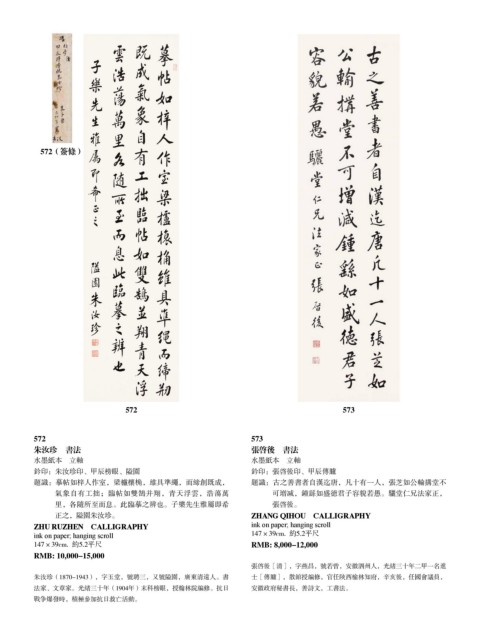 摹帖如梓人作室梁櫨榱桷維具準繩而締刱
既成氣象自有工拙臨帖如雙鵠並翔青天浮
雲浩蕩萬里各隨所至而息此臨摹之辨也
子樂先生雅屬即希正之
隘園朱汝珍
古之善書者自漢迄唐凡十一人張芝如
公輸搆堂不可增減鍾繇如盛德君子
容貌若愚
驪堂仁兄法家正 張啓後
572（簽條）
572
573
572
朱汝珍 書法
水墨紙本 立軸
鈐印：朱汝珍印、甲辰榜眼、隘園
題識：摹帖如梓人作室，梁櫨欀桷，維具準繩，而締創既成，
氣象自有工拙；臨帖如雙鵠并翔，青天浮雲，浩蕩萬
里，各隨所至而息。此臨摹之辨也。子樂先生雅屬即希
正之，隘園朱汝珍。
ZHU RUZHEN CALLIGRAPHY
ink on paper; hanging scroll
147×39cm. 約5.2平尺
RMB: 10,000-15,000
朱汝珍（1870-1943），字玉堂，號聘三，又號隘園，廣東清遠人。書
法家、文章家。光緒三十年（1904年）末科榜眼，授翰林院編修。抗日
戰爭爆發時，積極參加抗日救亡活動。
573
張啓後 書法
水墨紙本 立軸
鈐印：張啓後印、甲辰傳臚
題識：古之善書者自漢迄唐，凡十有一人，張芝如公輪搆堂不
可增減，鍾繇如盛德君子容貌若愚。驪堂仁兄法家正，
張啓後。
ZHANG QIHOU CALLIGRAPHY
ink on paper; hanging scroll
147×39cm. 約5.2平尺
RMB: 8,000-12,000
張啓後［清］，字燕昌，號若曾，安徽泗州人，光緒三十年二甲一名進
士［傳臚］，散館授編修。官任陝西榆林知府，辛亥後，任國會議員，
安徽政府秘書長。善詩文，工書法。